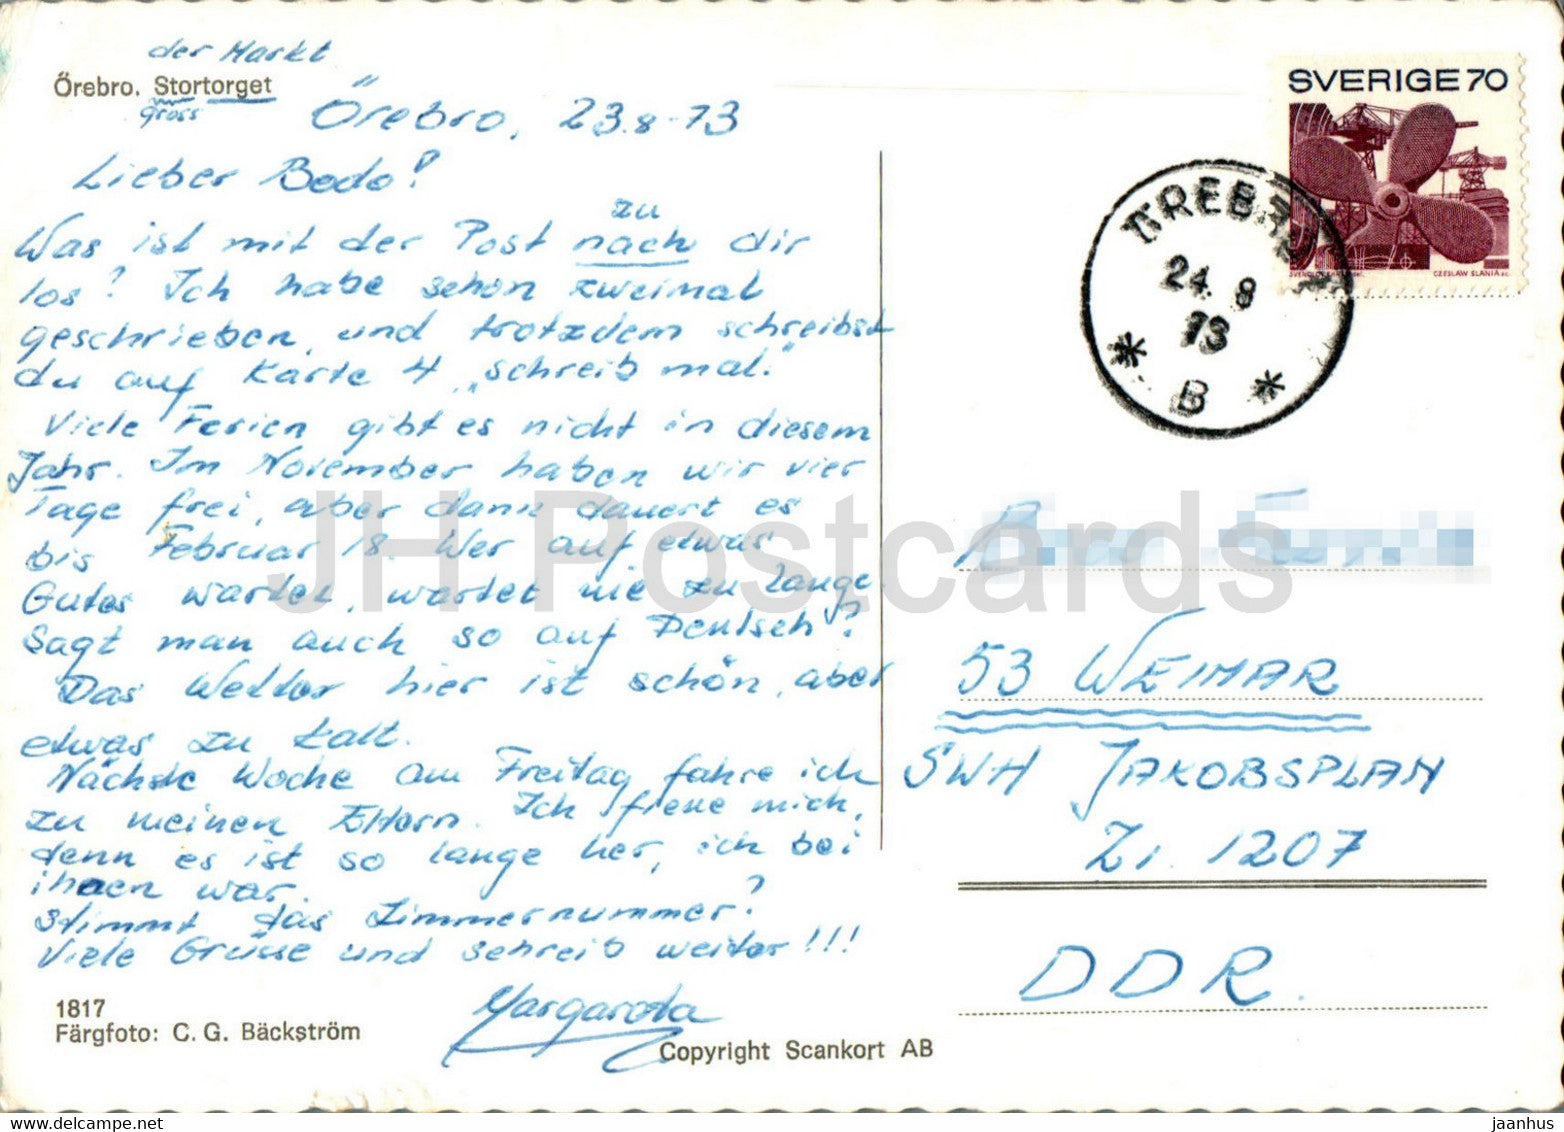 der Markt
Örebro. Stortorget
gross
Örebro, 23.8-73
Lieber Bodo!
zu
Was ist mit der Post nach dir
los? Ich habe schon zweimal
geschrieben, und trotzdem schreibst
du auf Karte 4 „schreib mal."
Viele Ferien gibt es nicht in diesem
Jahr. Im November haben wir vier
Tage frei, aber dann dauert es
bis Februar 18. Wer auf etwas
Gutes wartet, wartet nie zu lange.
Sagt man auch so auf Deutsch?
Das Wetter hier ist schön, aber
etwas zu kalt.
Nächste Woche am Freitag fahre ich
zu meinen Eltern. Ich freue mich,
denn es ist so lange her, ich bei
ihnen war.
Stimmt das Zimmernummer?
Viele Grüsse und schreib weiter!!!
Margareta
1817
Färgfoto: C. G. Bäckström
Copyright Scankort AB
SVERIGE 70
CZESLAW SLANIA sc.
ÖREBRO 1
24. 8
73
* B *
53 WEIMAR
SWH JAKOBSPLAN
Zi. 1207
DDR.
JH Postcards
jaanhus